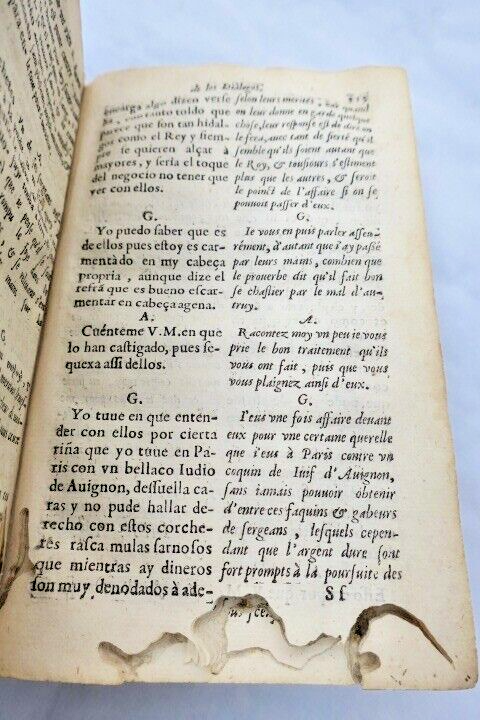 de los Dialogos.
encarga algo dizen verse
con tanto toldo que
parece que son tan hidal-
gos como el Rey y siem-
se quieren alçar à
mayores, y seria el toque
del negocio no tener que
ver con ellos.
G.
Yo puedo saber que es
de ellos pues estoy es car-
mentàdo en my cabeça
propria, aunque dize el
refrã que es bueno escar-
mentar en cabeça agena.
A.
Cuénteme V.M. en que
lo han castigado, pues se-
quexa assi dellos.
G.
Yo tuue en que enten-
der con ellos por cierta
riña que yo tuue en Pa-
ris con vn bellaco Iudio
de Auignon, dessuella ca-
ras y no pude hallar de-
recho con estos corche-
res rasca mulas sarnosos
que mientras ay dineros
son muy denodados à ade-
selon leurs merites, quand
on leur donne en garde quelque
chose, leur response est de dire on
le fera, auec tant de fierté qu'il
semble qu'ils soient autant que
le Roy, & tousiours s'estiment
plus que les autres, & seroit
le poinct de l'affaire si on se
pouuoit passer d'eux.
G.
Ie vous en puis parler asseu-
rément, d'autant que i'ay passé
par leurs mains, combien que
le prouerbe dit qu'il fait bon
se chastier par le mal d'au-
truy.
A.
Racontez moy vn peu ie vous
prie le bon traitement qu'ils
vous ont fait, puis que vous
vous plaignez ainsi d'eux.
G.
I'eus vne fois affaire deuant
eux pour vne certaine querelle
que i'eus à Paris contre vn
coquin de Iuif d'Auignon,
sans iamais pouuoir obtenir
d'entre ces faquins & gabeurs
de sergeans, lesquels cepen-
dant que l'argent dure sont
fort prompts à la poursuite des
Sf